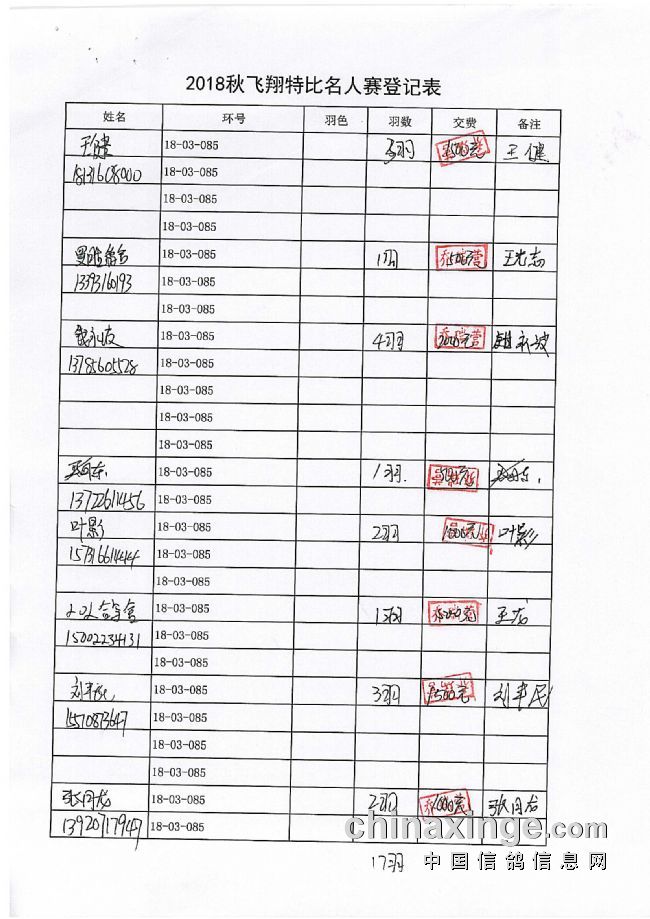 2018秋飞翔特比名人赛登记表
姓名 环号 羽色 羽数 交费 备注
王健 18-03-085 3羽 1500元 王健
18131608000 18-03-085
18-03-085
18-03-085
18-03-085 1羽 500元 王志
13393160193 18-03-085
18-03-085
18-03-085 4羽 2000元
13785605528 18-03-085
18-03-085
18-03-085
18-03-085
18-03-085 1羽. 500元
13722611456 18-03-085
叶影 18-03-085 2羽 1000元 叶影
15731661444 18-03-085
18-03-085
18-03-085 1羽 500元 王龙
15002234131 18-03-085
18-03-085
刘丰民 18-03-085 3羽 1500元 刘丰民
15570873647 18-03-085
18-03-085
18-03-085
张同龙 18-03-085 2羽 1000元 张同龙
13920717947 18-03-085
chinaxinge.com
17羽 中国信鸽信息网